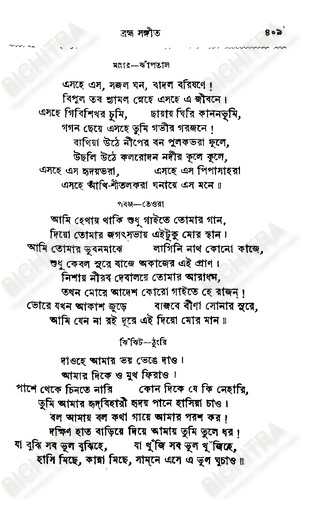 ব্রহ্ম সঙ্গীত ৪০৯
মল্লার—ঝাঁপতাল
এসহে এস, সজল ঘন, বাদল বরিষণে!
বিপুল তব শ্যামল স্নেহে এসহে এ জীবনে।
এসহে গিরিশিখর চুমি, ছায়ায় ঘিরি কাননভূমি,
গগন ছেয়ে এসহে তুমি গভীর গরজনে!
ব্যথিয়া উঠে নীপের বন পুলকভরা ফুলে,
উছলি উঠে কলরোদন নদীর কূলে কূলে,
এসহে এস হৃদয়ভরা, এসহে এস পিপাসাহরা
এসহে আঁখি-শীতলকরা ঘনায়ে এস মনে॥
পরজ—তেওরা
আমি হেথায় থাকি শুধু গাইতে তোমার গান,
দিয়ো তোমার জগৎসভায় এইটুকু মোর স্থান।
আমি তোমার ভুবনমাঝে লাগিনি নাথ কোনো কাজে,
শুধু কেবল সুরে বাজে অকাজের এই প্রাণ।
নিশায় নীরব দেবালয়ে তোমার আরাধন,
তখন মোরে আদেশ কোরো গাইতে হে রাজন্!
ভোরে যখন আকাশ জুড়ে বাজবে বীণা সোনার সুরে,
আমি যেন না রই দূরে এই দিয়ো মোর মান॥
ঝিঁঝিট—ঠুংরি
দাওহে আমার ভয় ভেঙে দাও।
আমার দিকে ও মুখ ফিরাও।
পাশে থেকে চিনতে নারি কোন দিকে যে কি নেহারি,
তুমি আমার হৃদ্‌বিহারী হৃদয় পানে হাসিয়া চাও।
বল আমায় বল কথা গায়ে আমার পরশ কর!
দক্ষিণ হাত বাড়িয়ে দিয়ে আমায় তুমি তুলে ধর!
যা বুঝি সব ভুল বুঝিহে, যা খুঁজি সব ভুল খুঁজিহে,
হাসি মিছে, কান্না মিছে, সাম্‌নে এসে এ ভুল ঘুচাও॥